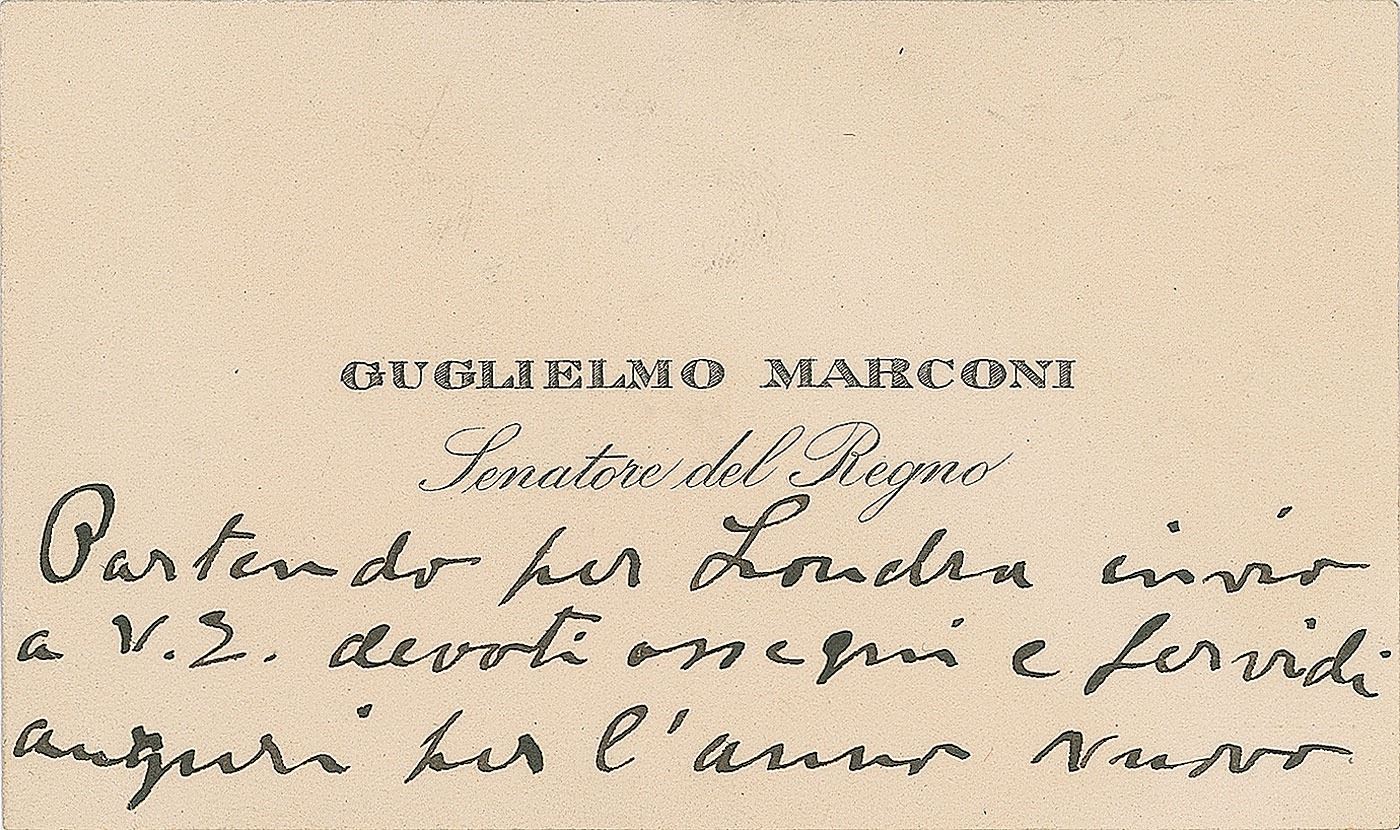 GUGLIELMO MARCONI
Senatore del Regno
Partendo per Londra invio
a V.E. devoti ossequi e fervidi
auguri per l'anno nuovo